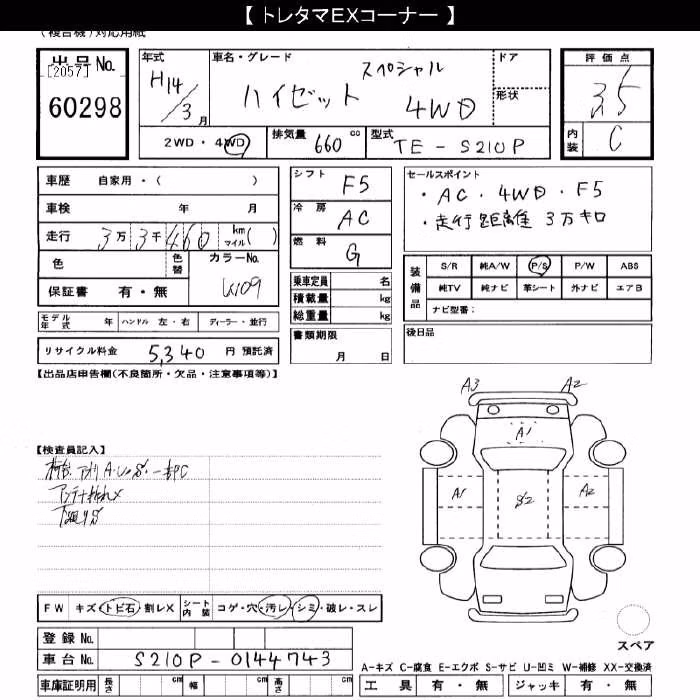 【 トレタマEXコーナー 】
(複合機)対応用紙
出品No.
[2057]
60298
年式 H14/3月
車名・グレード スペシャル
ハイゼット 4WD
ドア
形状
評価点 3.5
内装 C
2WD・4WD 排気量 660 cc 型式 TE-S210P
車歴 自家用・( )
車検 年 月
走行 3万3千460 km マイル( )
色 色替 カラーNo. W09
保証書 有・無
シフト F5
冷房 AC
燃料 G
乗車定員 名
積載量 kg
総重量 kg
書類期限
月 日
セールスポイント
・AC・4WD・F5
・走行距離 3万キロ
装備品
S/R 純A/W P/S P/W ABS
純TV 純ナビ 革シート 外ナビ エアB
ナビ型番:
後日品
モデル年式 年 ハンドル 左・右 ディーラー・並行
リサイクル料金 5,340 円 預託済
【出品店申告欄(不良箇所・欠品・注意事項等)】
A3 A2
A1
A1 S2 A2
【検査員記入】
下廻りS
FW キズ・トビ石・割レX シート内装 コゲ・穴・汚レ・シミ・破レ・スレ
登録No.
車台No. S210P-0144743
車庫証明用 長さ cm 幅 cm 高さ cm
スペア
A-キズ C-腐食 E-エクボ S-サビ U-凹ミ W-補修 XX-交換済
工具 有・無 ジャッキ 有・無